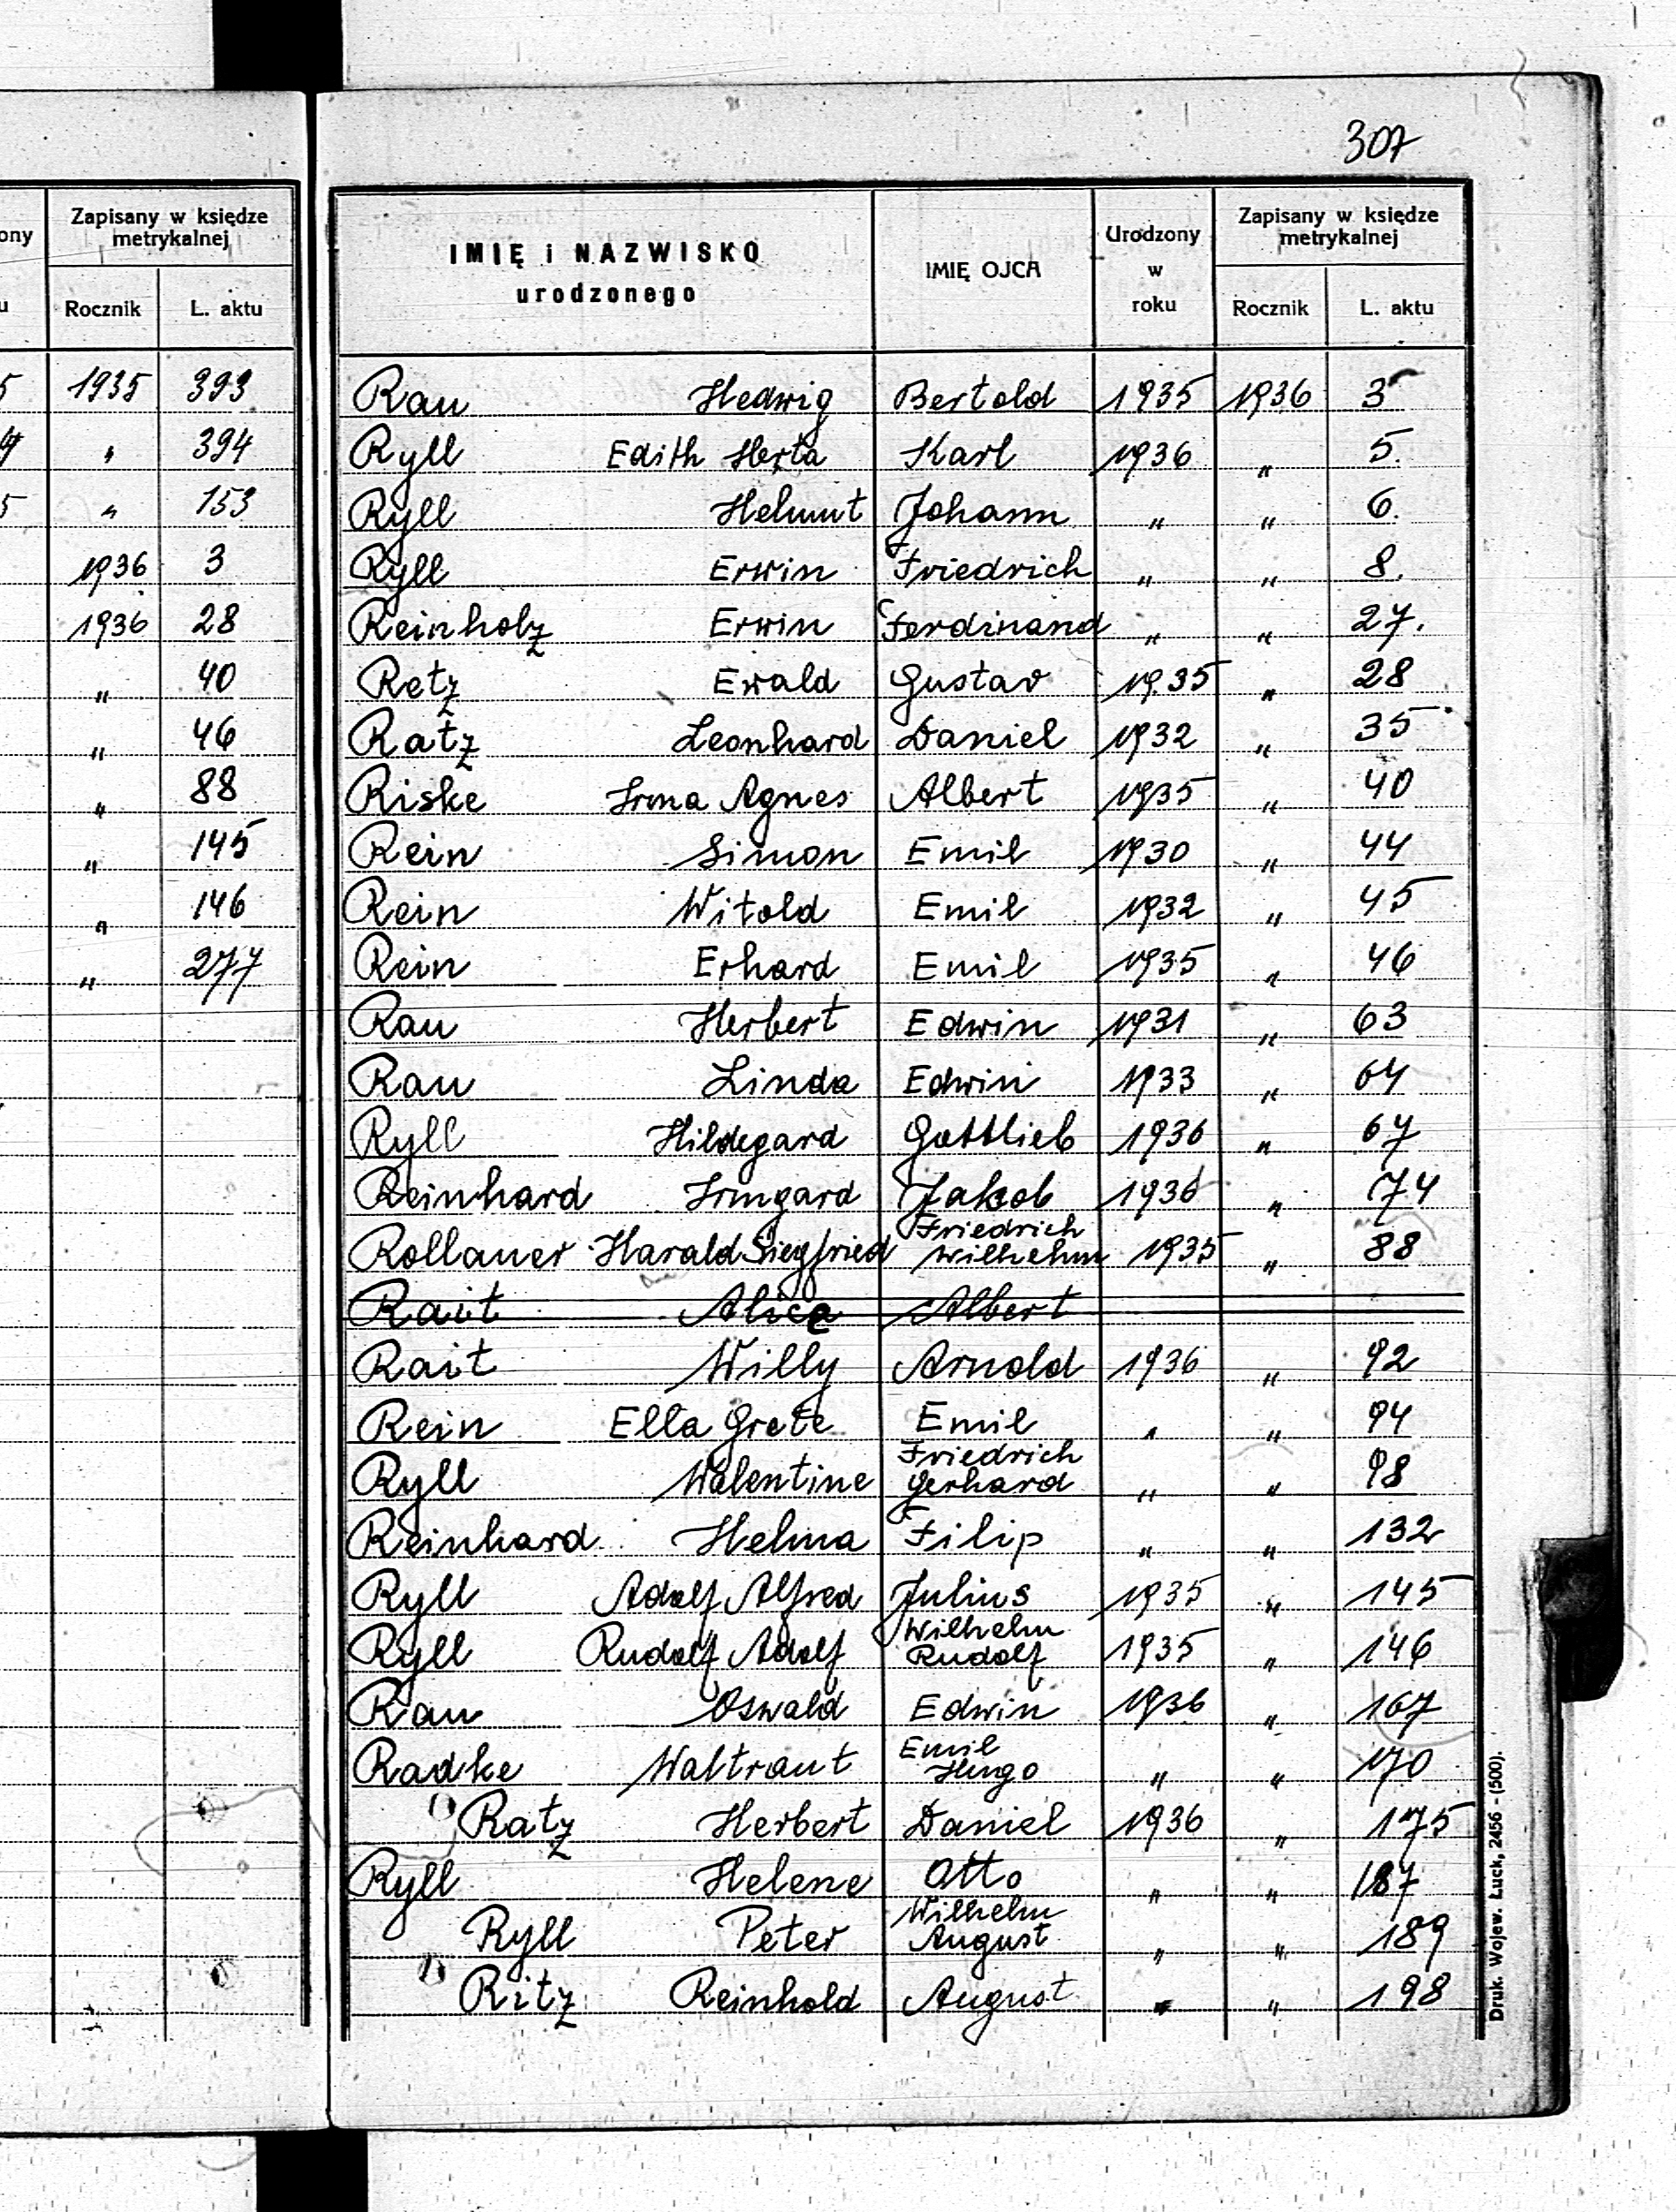 307
ony
Zapisany w księdze
metrykalnej
u
Rocznik L. aktu
5 1935 393
4 " 394
5 " 153
1936 3
1936 28
" 40
" 46
" 88
" 145
" 146
" 277
IMIĘ i NAZWISKO
urodzonego
IMIĘ OJCA
Urodzony
w
roku
Zapisany w księdze
metrykalnej
Rocznik L. aktu
Rau Hedwig Bertold 1935 1936 3
Ryll Edith Herta Karl 1936 " 5.
Ryll Helmut Johann " " 6.
Ryll Erwin Friedrich " " 8.
Reinholz Erwin Ferdinand " " 27.
Retz Ewald Gustav 1935 " 28
Ratz Leonhard Daniel 1932 " 35
Riske Irma Agnes Albert 1935 " 40
Rein Simon Emil 1930 " 44
Rein Witold Emil 1932 " 45
Rein Erhard Emil 1935 " 46
Rau Herbert Edwin 1931 " 63
Rau Linda Edwin 1933 " 64
Ryll Hildegard Gottlieb 1936 " 67
Reinhard Irmgard Jakob 1936 " 74
Rollauer Harald Siegfried Friedrich Wilhelm 1935 " 88
Rait Alice Albert
Rait Willy Arnold 1936 " 92
Rein Ella Grete Emil " " 94
Ryll Walentine Friedrich Gerhard " " 98
Reinhard Helma Filip " " 132
Ryll Adolf Alfred Julius 1935 " 145
Ryll Rudolf Adolf Wilhelm Rudolf 1935 " 146
Rau Oswald Edwin 1936 " 167
Radke Waltraut Emil Hugo " " 170
Ratz Herbert Daniel 1936 " 175
Ryll Helene Otto " " 187
Ryll Peter Wilhelm August " " 189
Ritz Reinhold August " " 198
Druk. Wojew. Łuck, 2456 - (500).